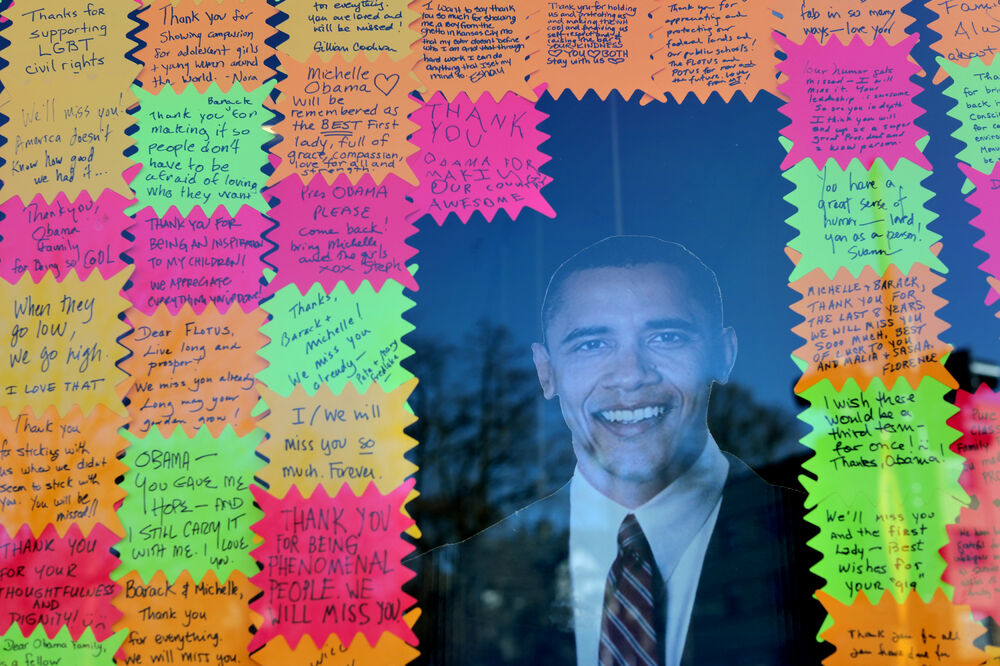 Thanks for
supporting
LGBT
civil rights
We'll miss you!
America doesn't
Know how good
we had it...
Thank you,
Obama
family
for Being so COOL
When they
go low,
we go high.
I LOVE THAT
Thank you
for sticking with
us when we didn't
seem to stick with
you. You will be
missed!!
THANK YOU
FOR YOUR
THOUGHTFULNESS
AND
DIGNITY!
Dear Obama Family,
is a fellow
Thank You for
Showing compassion
for adolescent girls
& young women around
the World. -Nora
Barack
Thank you for
making it so
people don't
have to be
afraid of loving
who they want
THANK YOU FOR
BEING AN INSPIRATION
TO MY CHILDREN!
WE APPRECIATE
EVERYTHING YOU'VE DONE!
Dear FLOTUS,
Live long and
prosper!
We miss you already
Long may your
garden grow!
OBAMA—
YOU GAVE ME
HOPE— AND
I STILL CARRY IT
WITH ME. I LOVE
you.
Barack & Michelle,
Thank you
for everything.
We will miss you.
for everything.
you are loved and
will be missed!
Gillian
Michelle
Obama ♡
will be
remembered as
the BEST First
lady, full of
grace, compassion,
love for all and
strength.
Pres OBAMA
PLEASE
come back!
bring Michelle
and the girls
xox Steph
Thanks,
Barack +
Michelle!
We miss you
already—
Pete + Amy
I/We will
miss you so
much. Forever.
THANK YOU
FOR BEING
PHENOMENAL
PEOPLE. WE
WILL MISS YOU.
I want to say thank
you so much for showing
me a boy from the
ghetto in Kansas City Mo
that my color doesn't define
who I am and that through
hard work I can be
anything that I set my
mind to
THANK
YOU
OBAMA FOR
MAKING
OUR COUNTRY
AWESOME
Thank you for holding
us and protecting us
and making the WH
cool and giving us
self-respect and
raising the bar
YOUR KINDNESS
♡ YOU BOTH
Stay with us ♡
Thank you for
appreciating and
protecting our
federal lands and
our public schools!
The FLOTUS and
POTUS for now and
the future. Love
from MI
fab in so many
ways— love you!
Your human
missed— I will
miss it. Your
leadership is awesome
So are you in depth
I think you will
end up as a super
great President and
a wow person.
You have a
great sense of
humor— loved
you as a person.
Suann
MICHELLE & BARACK,
THANK YOU FOR
THE LAST 8 YEARS.
WE WILL MISS YOU
SOOO MUCH, BEST
OF LUCK TO YOU
AND MALIA & SASHA.
FLORENCE
I wish there
would be a
third term—
for once!
Thanks, Obama!
We'll miss you
and the first
Lady— Best
Wishes for
your
Thank you for all
you have done for